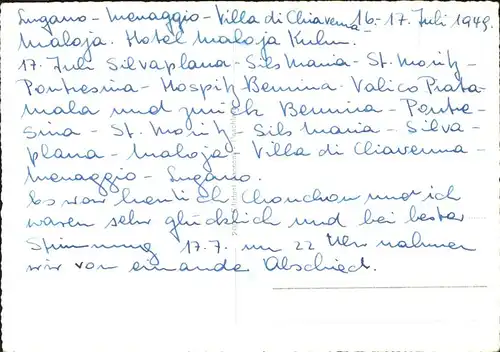 Lugano - Menaggio - Villa di Chiavenna 16.-17. Juli 1949.
Maloja. Hotel Maloja Kulm.
17. Juli Silvaplana - Sils Maria - St. Moritz -
Pontresina - Hospitz Bernina. Valico Prata-
mala und zurück Bernina - Pontre-
sina - St. Moritz - Sils Maria - Silva-
plana - Maloja - Villa di Chiavenna -
Menaggio - Lugano.
Es war herrlich Chouchou und ich
waren sehr glücklich und bei bester
Stimmung 17.7. um 22 Uhr nahmen
wir von einander Abschied.